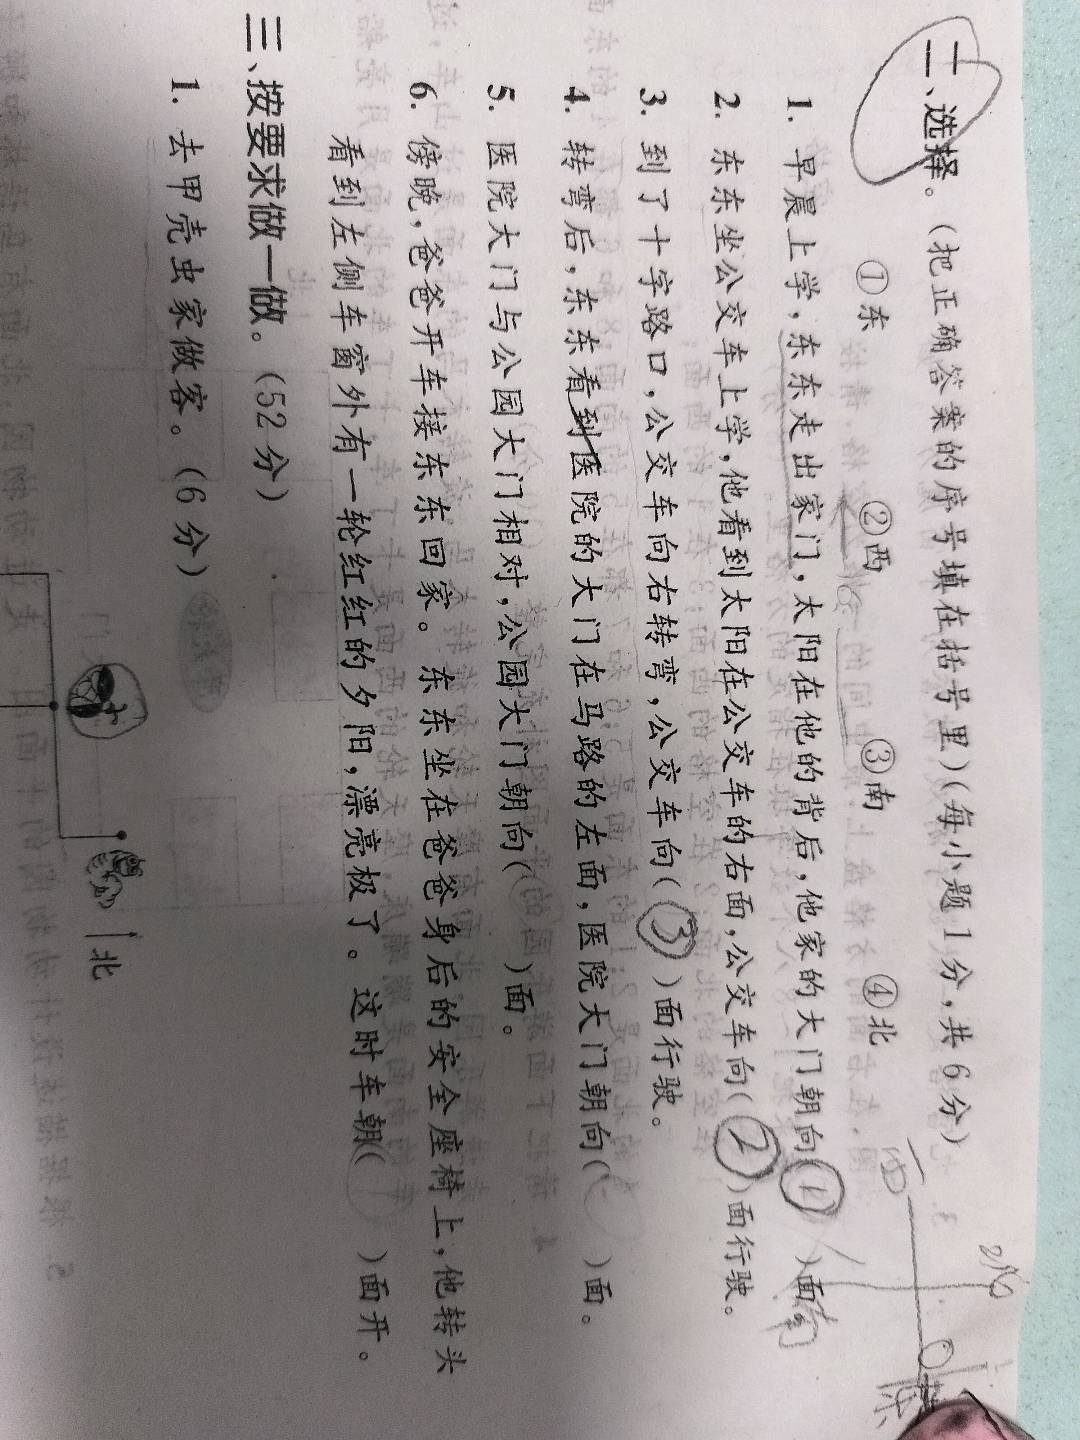 二、选择。(把正确答案的序号填在括号里)(每小题1分,共6分)
①东 ②西 ③南 ④北
1. 早晨上学,东东走出家门,太阳在他的背后,他家的大门朝向( )面。
2. 东东坐公交车上学,他看到太阳在公交车的右面,公交车向(2)面行驶。
3. 到了十字路口,公交车向右转弯,公交车向(3)面行驶。
4. 转弯后,东东看到医院的大门在马路的左面,医院大门朝向( )面。
5. 医院大门与公园大门相对,公园大门朝向( )面。
6. 傍晚,爸爸开车接东东回家。东东坐在爸爸身后的安全座椅上,他转头
看到左侧车窗外有一轮红红的夕阳,漂亮极了。这时车朝( )面开。
三、按要求做一做。(52分)
1. 去甲壳虫家做客。(6分)
北
南